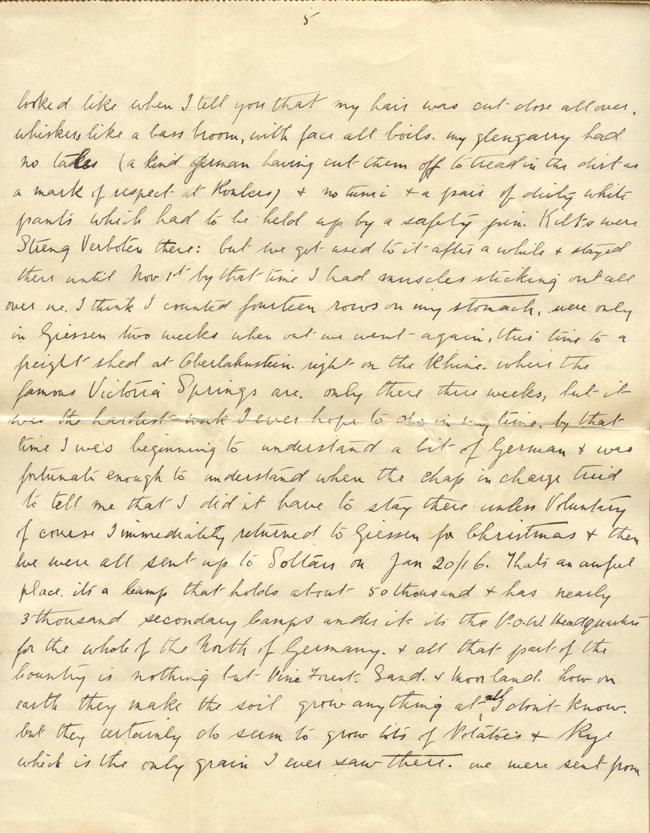 5
looked like when I tell you that my hair was cut close all over.
whiskers like a bass broom, with face all boils. my glengarry had
no tales (a kind german having cut them off to tread in the dirt as
a mark of respect at Roulers) + no tunic + a pair of dirty white
pants which had to be held up by a safety pin. Kilts were
Streng Verboten there: but we got used to it after a while + stayed
there until Nov 1st by that time I had muscles sticking out all
over me. I think I counted fourteen rows on my stomach. were only
in Giessen two weeks when out we went again, this time to a
freight shed at Oberlahnstein. right on the Rhine. where the
famous Victoria Springs are. only there three weeks, but it
was the hardest work I ever hope to do in my time. by that
time I was beginning to understand a bit of German + was
fortunate enough to understand when the chap in charge tried
to tell me that I did nt have to stay there unless Voluntary
of course I immediately returned to Giessen for Christmas + then
we were all sent up to Soltau on Jan 20/16. Thats an awful
place. its a Camp that holds about 50 thousand + has nearly
3 thousand secondary Camps under it. its the P.O.W. Headquarters
for the whole of the North of Germany. + all that part of the
Country is nothing but Pine Forest. Sand. + Moorland. how on
earth they make the soil grow anything at all I dont know.
but they certainly do seem to grow lots of Potatoes + Rye
which is the only grain I ever saw there. we were sent from